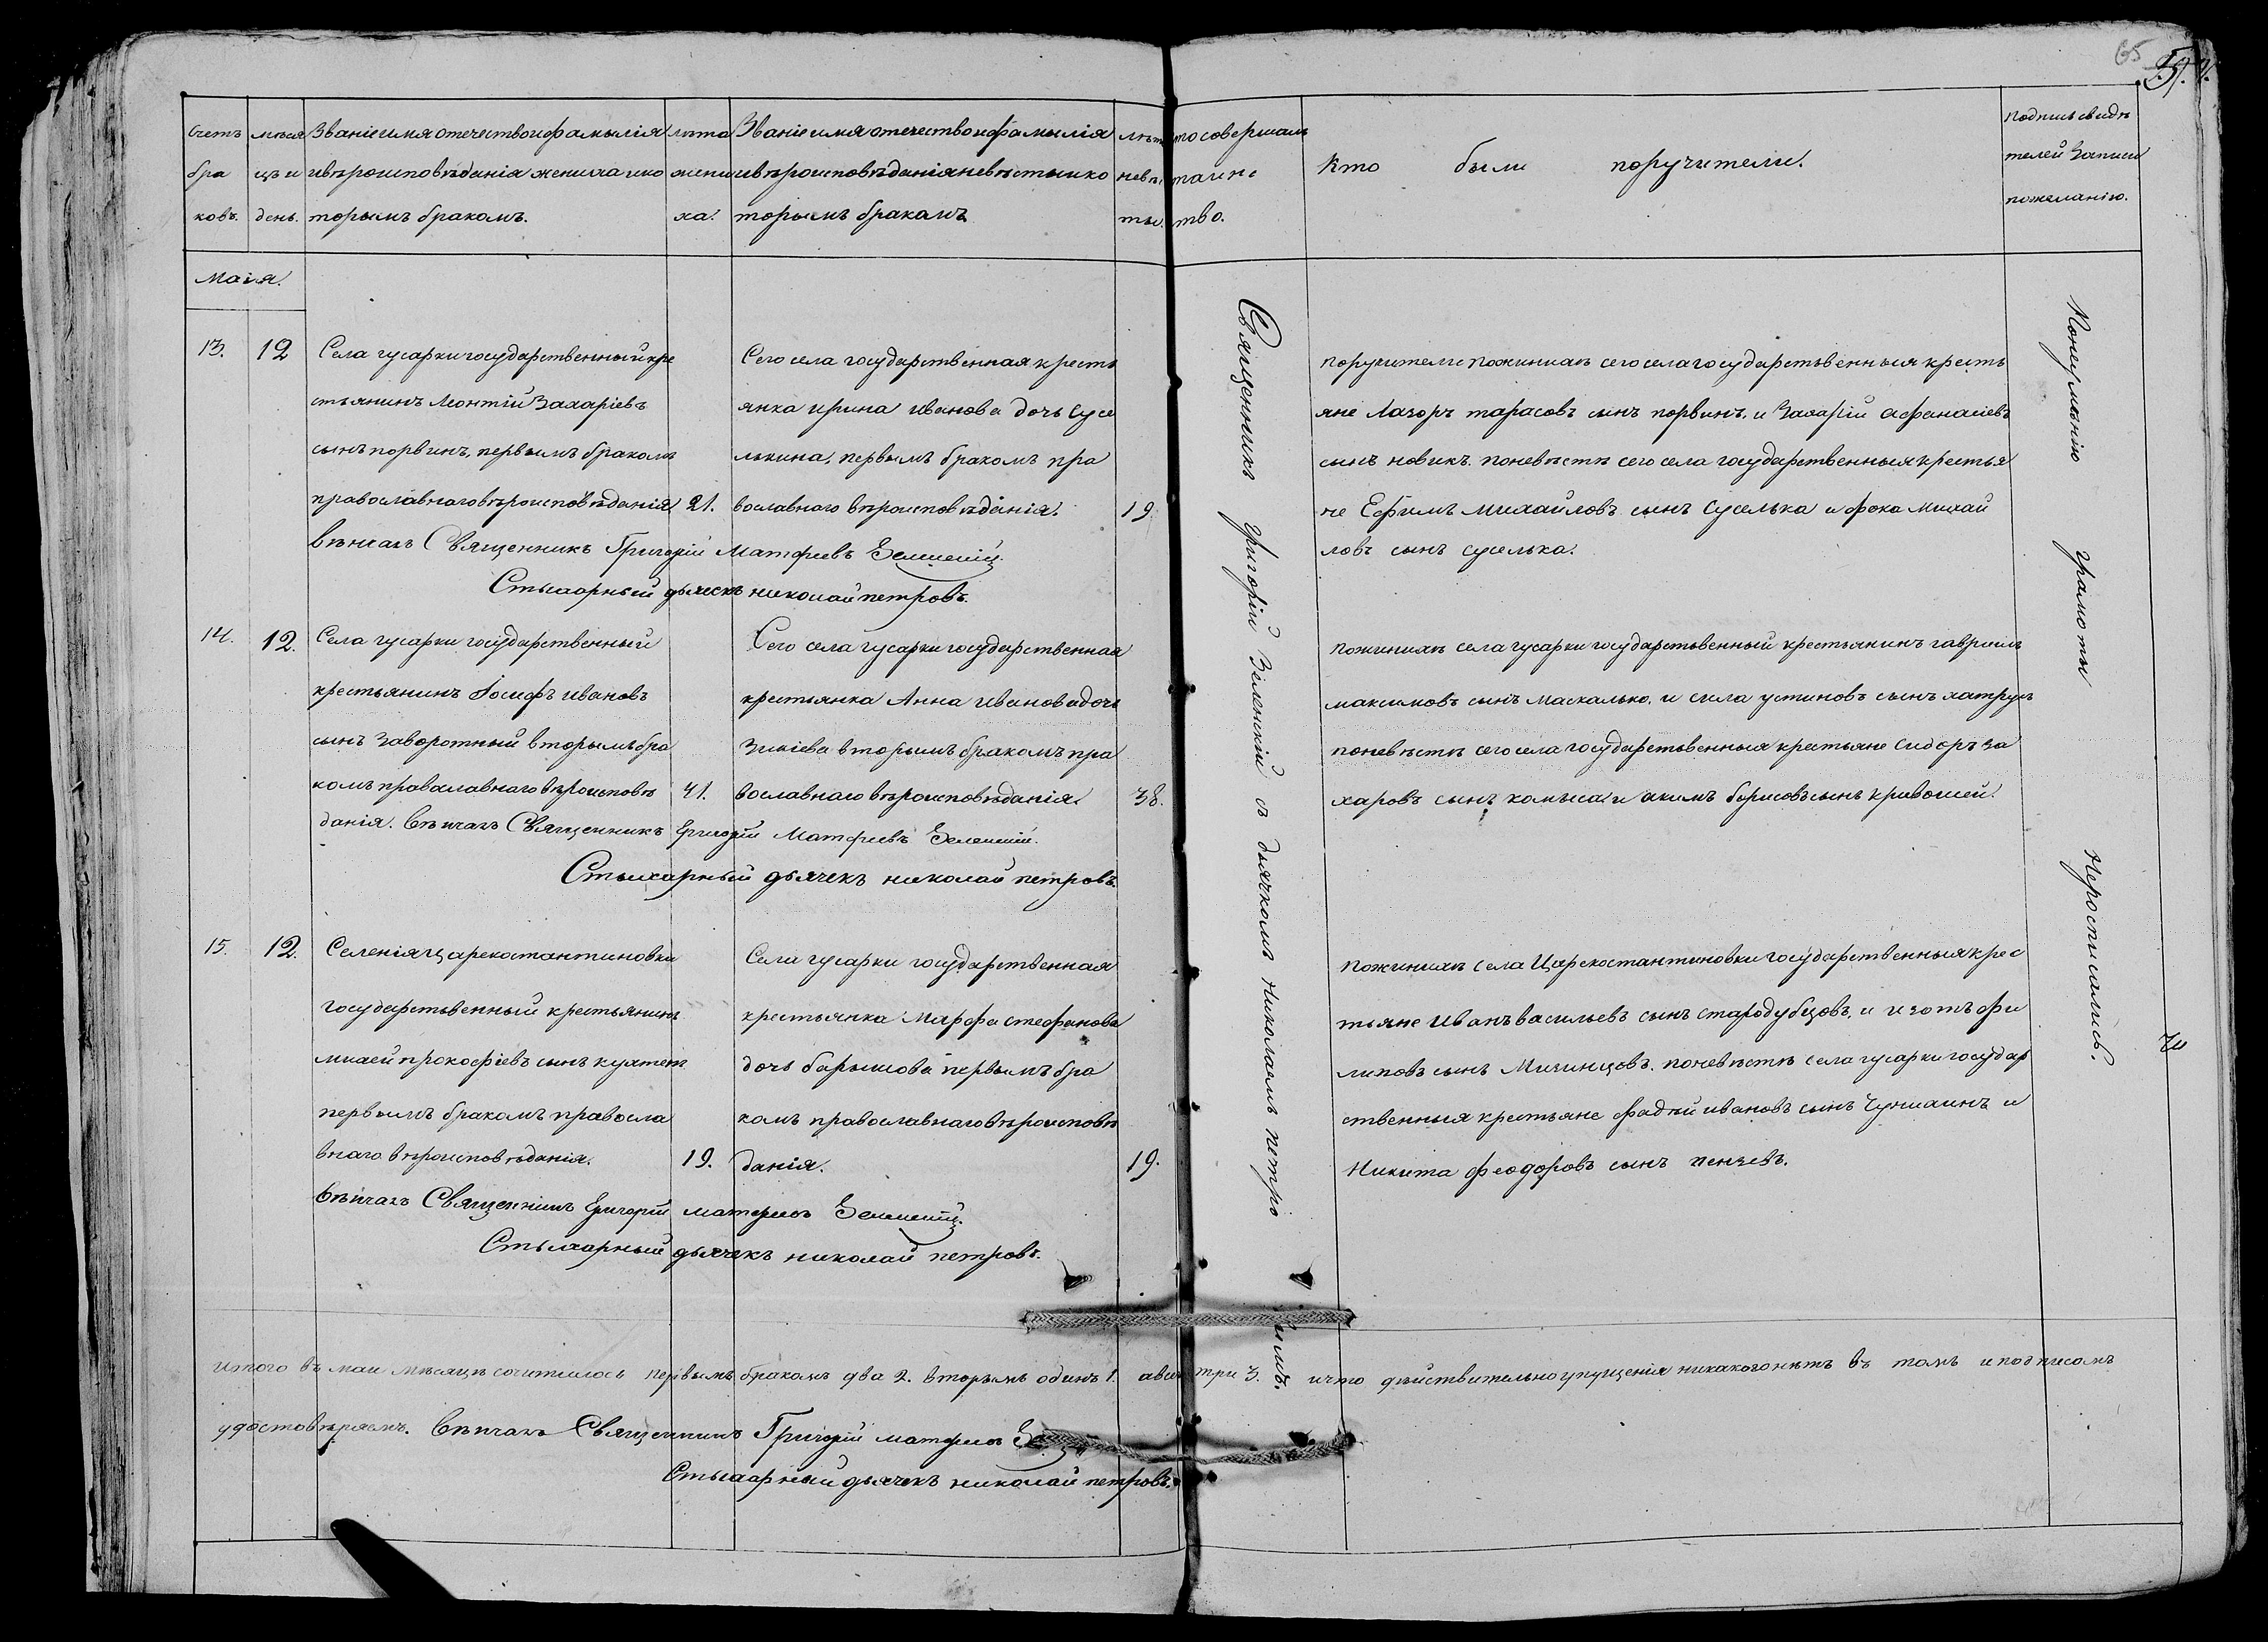 65
Счетъ
бра
ковъ.
мѣся
цъ и
день.
Званіе имя отечество и фамилія
и вѣроисповѣданія жениха и ко
торымъ бракомъ.
лѣта
жени
ха.
Званіе имя отечество и фамилія
и вѣроисповѣданія невѣсты и ко
торымъ бракамъ
лѣт
невѣ
ты.
то совершалъ
таинс
тво.
Кто были поручители.
подпись свидѣ
телей записи
по желанію.
Маія.
13. 12
Села гусарки государственный кре
стьянинъ Леонтій Захаріевъ
сынъ порвинъ, первымъ бракомъ
православнаго вѣроисповѣданія 21.
Сего села государственная кресть
янка ирина иванова дочь Сусе
лькина, первымъ бракомъ пра
вославнаго вѣроисповѣданія. 19
поручители по женихѣ сего села государственныя кресть
яне Лазорь тарасовъ сынъ порвинъ, и Захарій афанасіевъ
сынъ новикъ. по невѣстѣ сего села государственныя крестья
не Ефимъ михайловъ сынъ Суселька и фока михай
ловъ сынъ суселька.
вѣнчалъ Священникъ Григорій Матфиевъ Зеленскій
Стихарный дьячекъ николай петровъ.
14. 12.
Села гусарки государственный
крестьянинъ Іосифъ ивановъ
сынъ Заворотный вторымъ бра
комъ православнаго вѣроисповѣ 41.
данія.
Сего села гусарки государственная
крестьянка Анна иванова дочь
вторымъ бракомъ пра
вославнаго вѣроисповѣданія. 38.
по женихѣ села гусарки государственный крестьянинъ гавриилъ
максимовъ сынъ маскалько, и сила устиновъ сынъ
по невѣстѣ сего села государственныя крестьяне Сидоръ за
харовъ сынъ и акимъ борисовъ сынъ кривошей.
Вѣнчалъ Священникъ Григорій Матфиевъ Зеленскій.
Стихарный дьячекъ николай петровъ.
15. 12.
Селенія Царекостантиновки
государственный крестьянинъ
прокофіевъ сынъ
первымъ бракомъ правосла
внаго вѣроисповѣданія. 19.
Села гусарки государственная
крестьянка Марфа стефанова
дочь барышова первымъ бра
комъ православнаго вѣроисповѣ
данія. 19.
по женихѣ села Царекостантиновки государственныя крес
тьяне иванъ васильевъ сынъ стародубцовъ, и изотъ фи
липовъ сынъ Мизинцовъ. по невѣстѣ села гусарки государ
ственныя крестьяне фадѣй ивановъ сынъ и
Никита феодоровъ сынъ пензевъ.
Вѣнчалъ Священникъ Григорій матфиевъ Зеленскій.
Стихарный дьячекъ николай петровъ.
Священникъ григорій Зеленскій съ дьячкомъ Николаемъ петро
имъ.
По неумѣнію грамоты Неросписались.
итого въ маи мѣсяцѣ сочиталось первымъ бракомъ два 2. вторымъ одинъ 1. три 3. и что дѣйствительно упущенія никакого нѣтъ въ томъ и подписомъ
удостовѣряемъ. Вѣнчалъ Священникъ Григорій матфиевъ
Стихарный дьячекъ николай петровъ.